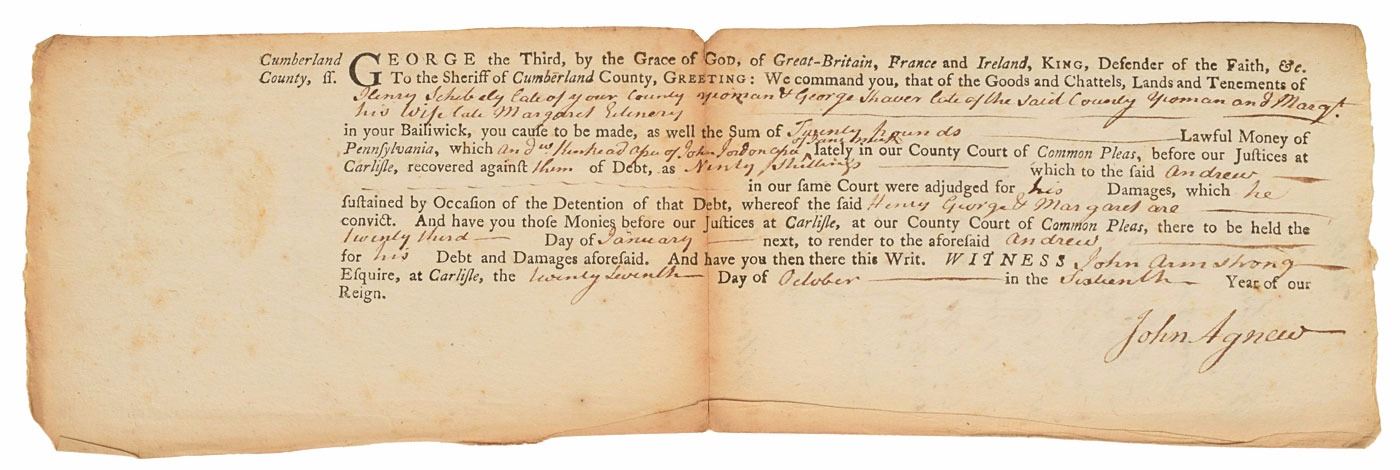 Cumberland County, ſſ. GEORGE the Third, by the Grace of GOD, of Great-Britain, France and Ireland, KING, Defender of the Faith, &c.
To the Sheriff of Cumberland County, GREETING: We command you, that of the Goods and Chattels, Lands and Tenements of
Henry Schibely late of your County yeoman & George Shaver late of the Said County Yeoman and Margt.
his Wife late Margaret
in your Bailiwick, you cauſe to be made, as well the Sum of Twenty pounds Lawful Money of
Pennſylvania, which Andw. Kinkead of John Jordon lately in our County Court of Common Pleas, before our Juſtices at
Carliſle, recovered againſt them of Debt, as Ninty Shillings which to the ſaid Andrew
in our ſame Court were adjudged for his Damages, which he
ſuſtained by Occaſion of the Detention of that Debt, whereof the ſaid Henry George & Margaret are
convict. And have you thoſe Monies before our Juſtices at Carliſle, at our County Court of Common Pleas, there to be held the
twenty third Day of January next, to render to the aforeſaid Andrew
for his Debt and Damages aforeſaid. And have you then there this Writ. WITNESS John Armstrong
Eſquire, at Carliſle, the twenty Seventh Day of October in the Sixteenth Year of our
Reign.
John Agnew